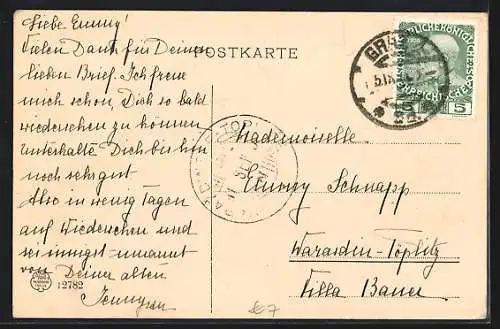 Liebe Emmy!
Vielen Dank für Deinen
lieben Brief. Ich freue
mich schon, Dich so bald
wiedersehen zu können
unterhalte Dich bis hin
noch sehr gut
Also in wenig Tagen
auf Wiedersehen und
sei innigst umarmt
von Deiner alten
Jenny
12782
POSTKARTE
GRAZ
5
Mademoiselle
Emmy Schnapp
Warasdin-Töplitz
Villa Bauer